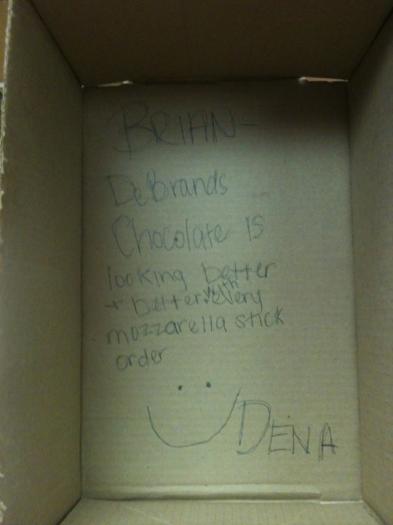 BRIAN-
DeBrands
Chocolate IS
looking better
+ better with every
mozzarella stick
order
DENA